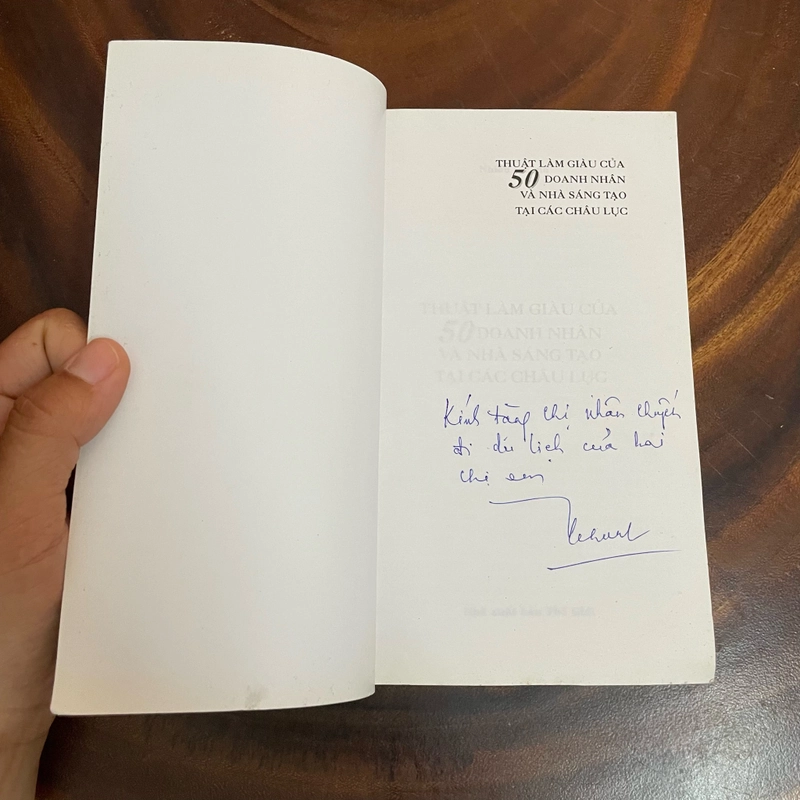 THUẬT LÀM GIÀU CỦA
50 DOANH NHÂN
VÀ NHÀ SÁNG TẠO
TẠI CÁC CHÂU LỤC
THUẬT LÀM GIÀU CỦA
50 DOANH NHÂN
VÀ NHÀ SÁNG TẠO
TẠI CÁC CHÂU LỤC
Kính tặng chị nhân chuyến
đi du lịch của hai
chị em